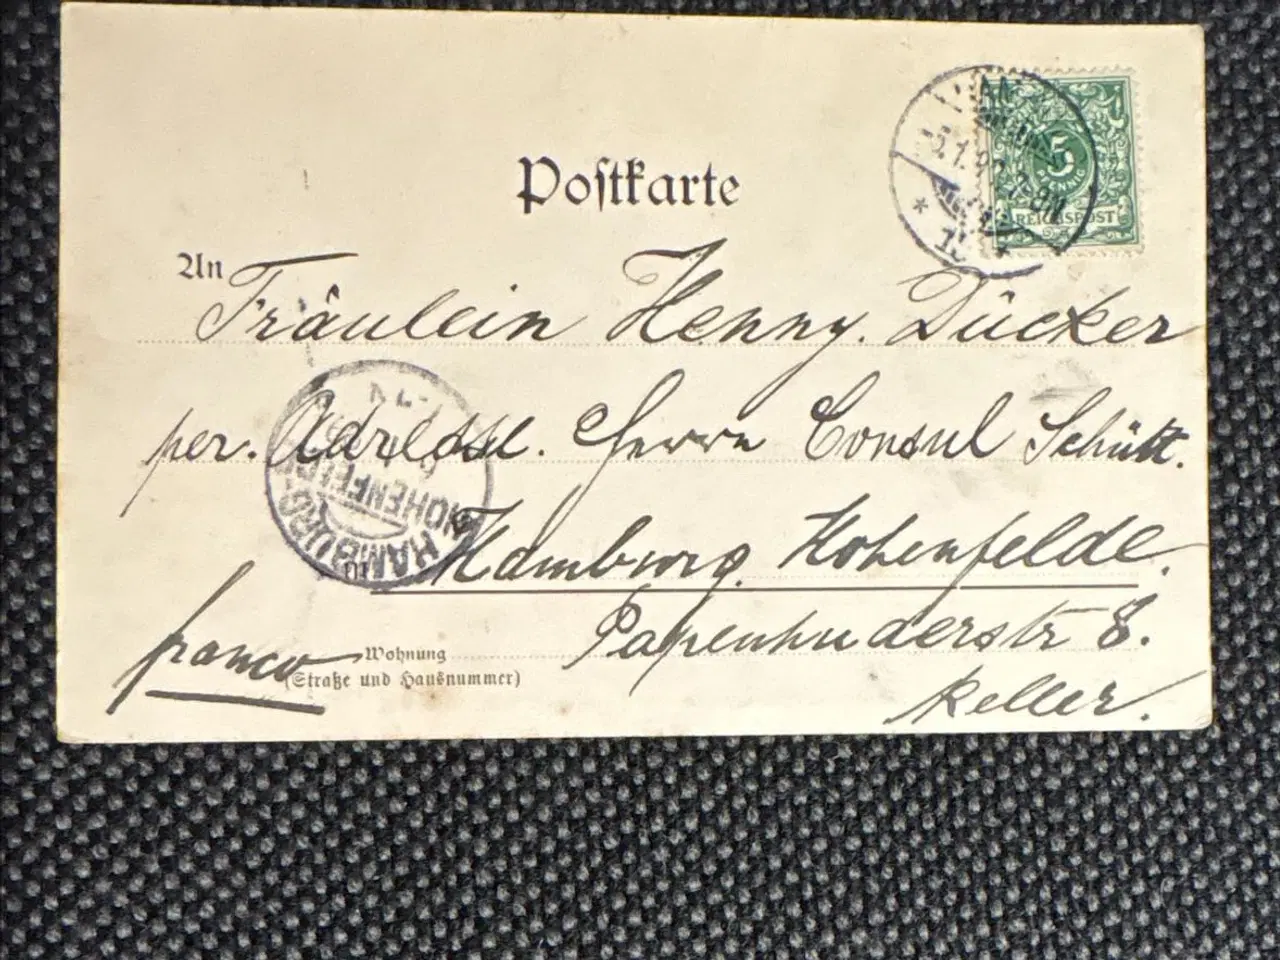 Postkarte
5
PFENNIG
REICHSPOST
An Fräulein Henny. Dücker
per. Adresse. Herrn Consul Schütt.
HAMBURG
HOHENFELDE
Hamburg. Hohenfelde.
franco
Wohnung Papenhuderstr 8.
(Straße und Hausnummer)
Keller.